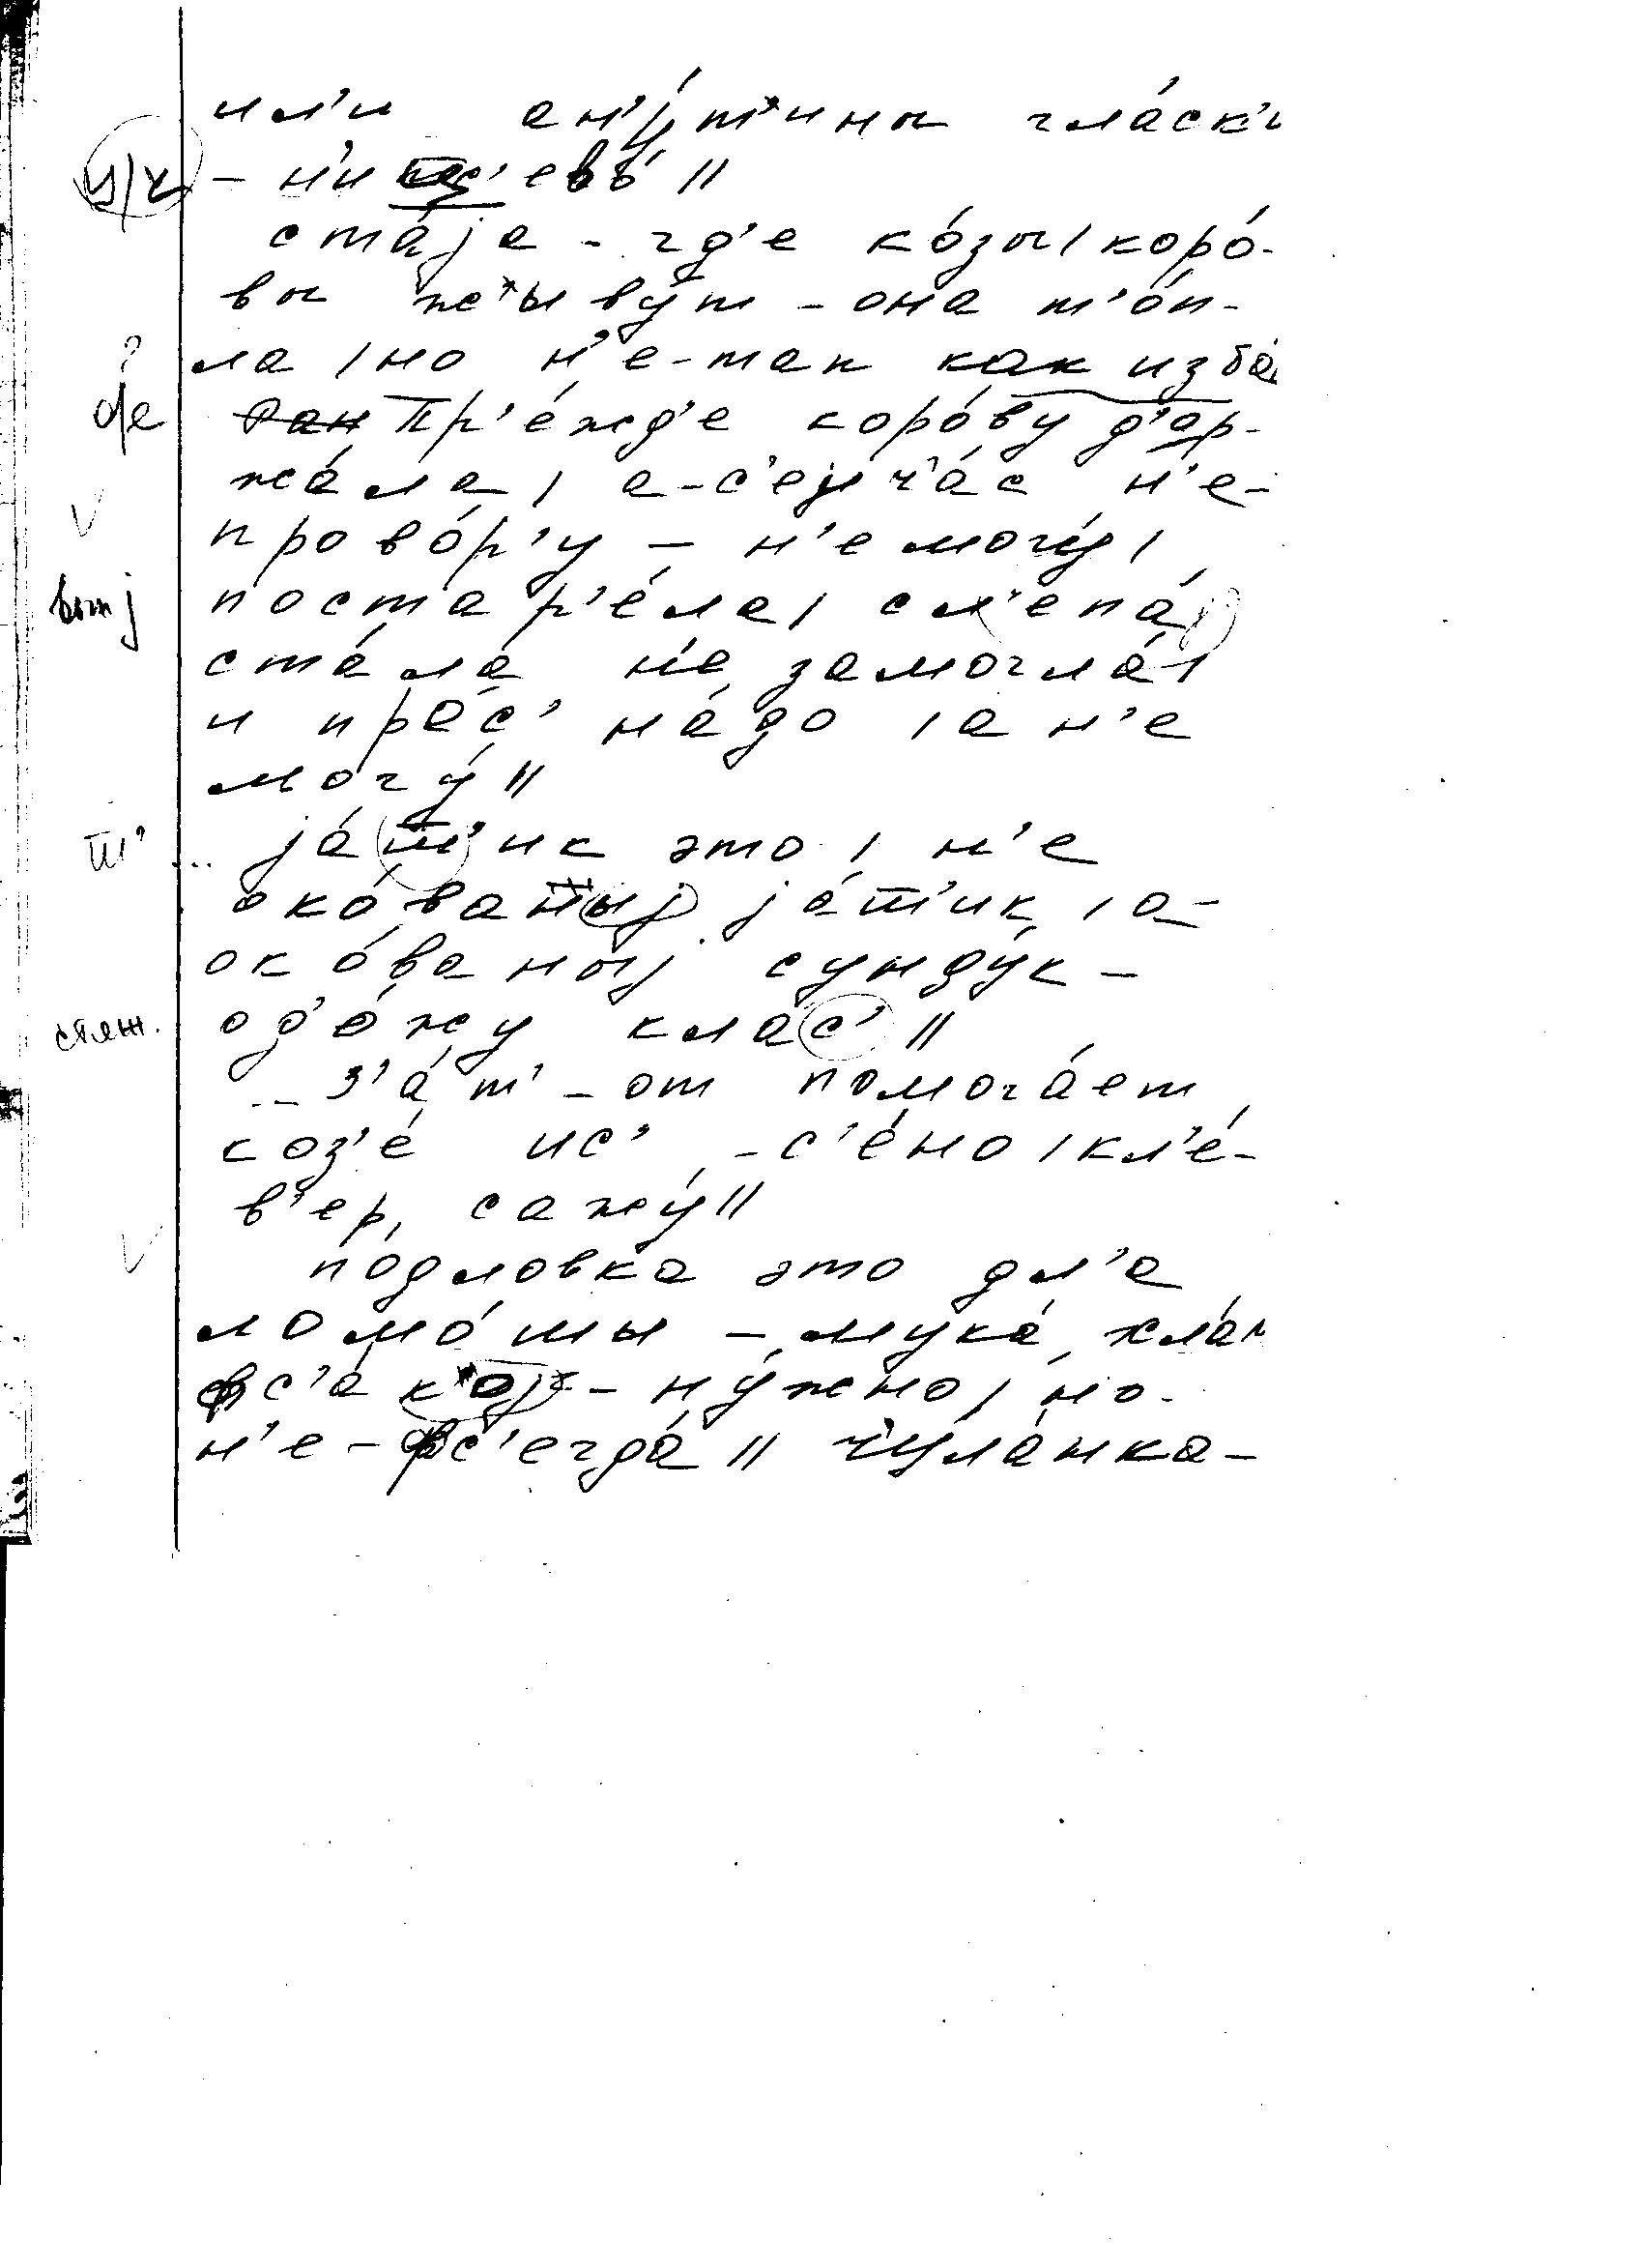 ил'и ан'у́т'ины гла́ск'и
у/х - н'и евъ́ //
ста́jа - гд'е ко́зы / коро́-
вы жывýт - она т'о́п-
? ла / но н'е-так как изба́
фе Пр'е́жд'е коро́ву д'ар-
жа́ла / а-с'еича́с н'е-
прово́р'у - н'е могу́ /
вотj поста р'е́ла / сл'епа́
ста́ла н'е замогла́ /
и пр'ас' на́до / а н'е
могу́ //
ш' ... jа́ш'ик это / н'е
око́ваныj jа́ш'ик / а-
око́ваныj сунду́к -
стяж. од'о́жу клас' //
... з'а́т' - от помога́ет
коз'е́ ис' - с'е́но / кл'е́-
в'ер, сажу́ //
по́дловка это дл'а
ломо́ты - мука́ хлам
фс'а́коj - ну́жно / но-
н'е-фс'егда́ // чула́нка-